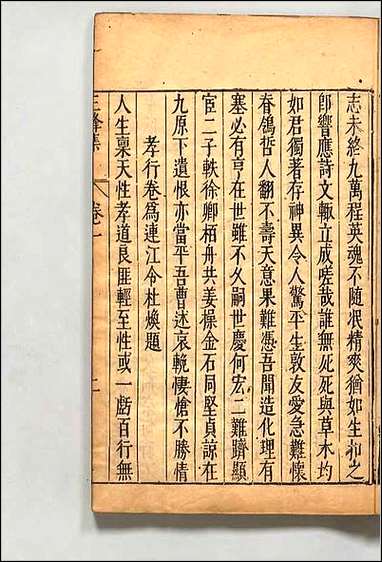 志未終九萬程英魂不隨泯精爽猶如生扣之
卽響應詩文輙立成嗟哉誰無死死與草木均
如君獨著存神異令人驚平生敦友愛急難懷
脊鴒哲人翻不壽天意果難憑吾聞造化理有
塞必有亨在世雖不久嗣世慶何宏二難躋顯
宦二子軼徐卿栢舟共姜操金石同堅貞諒在
九原下遺恨亦當平吾曹述哀輓悽愴不勝情
孝行卷爲連江令杜煥題
人生稟天性孝道良匪輕至性或一虧百行無
卷一
二